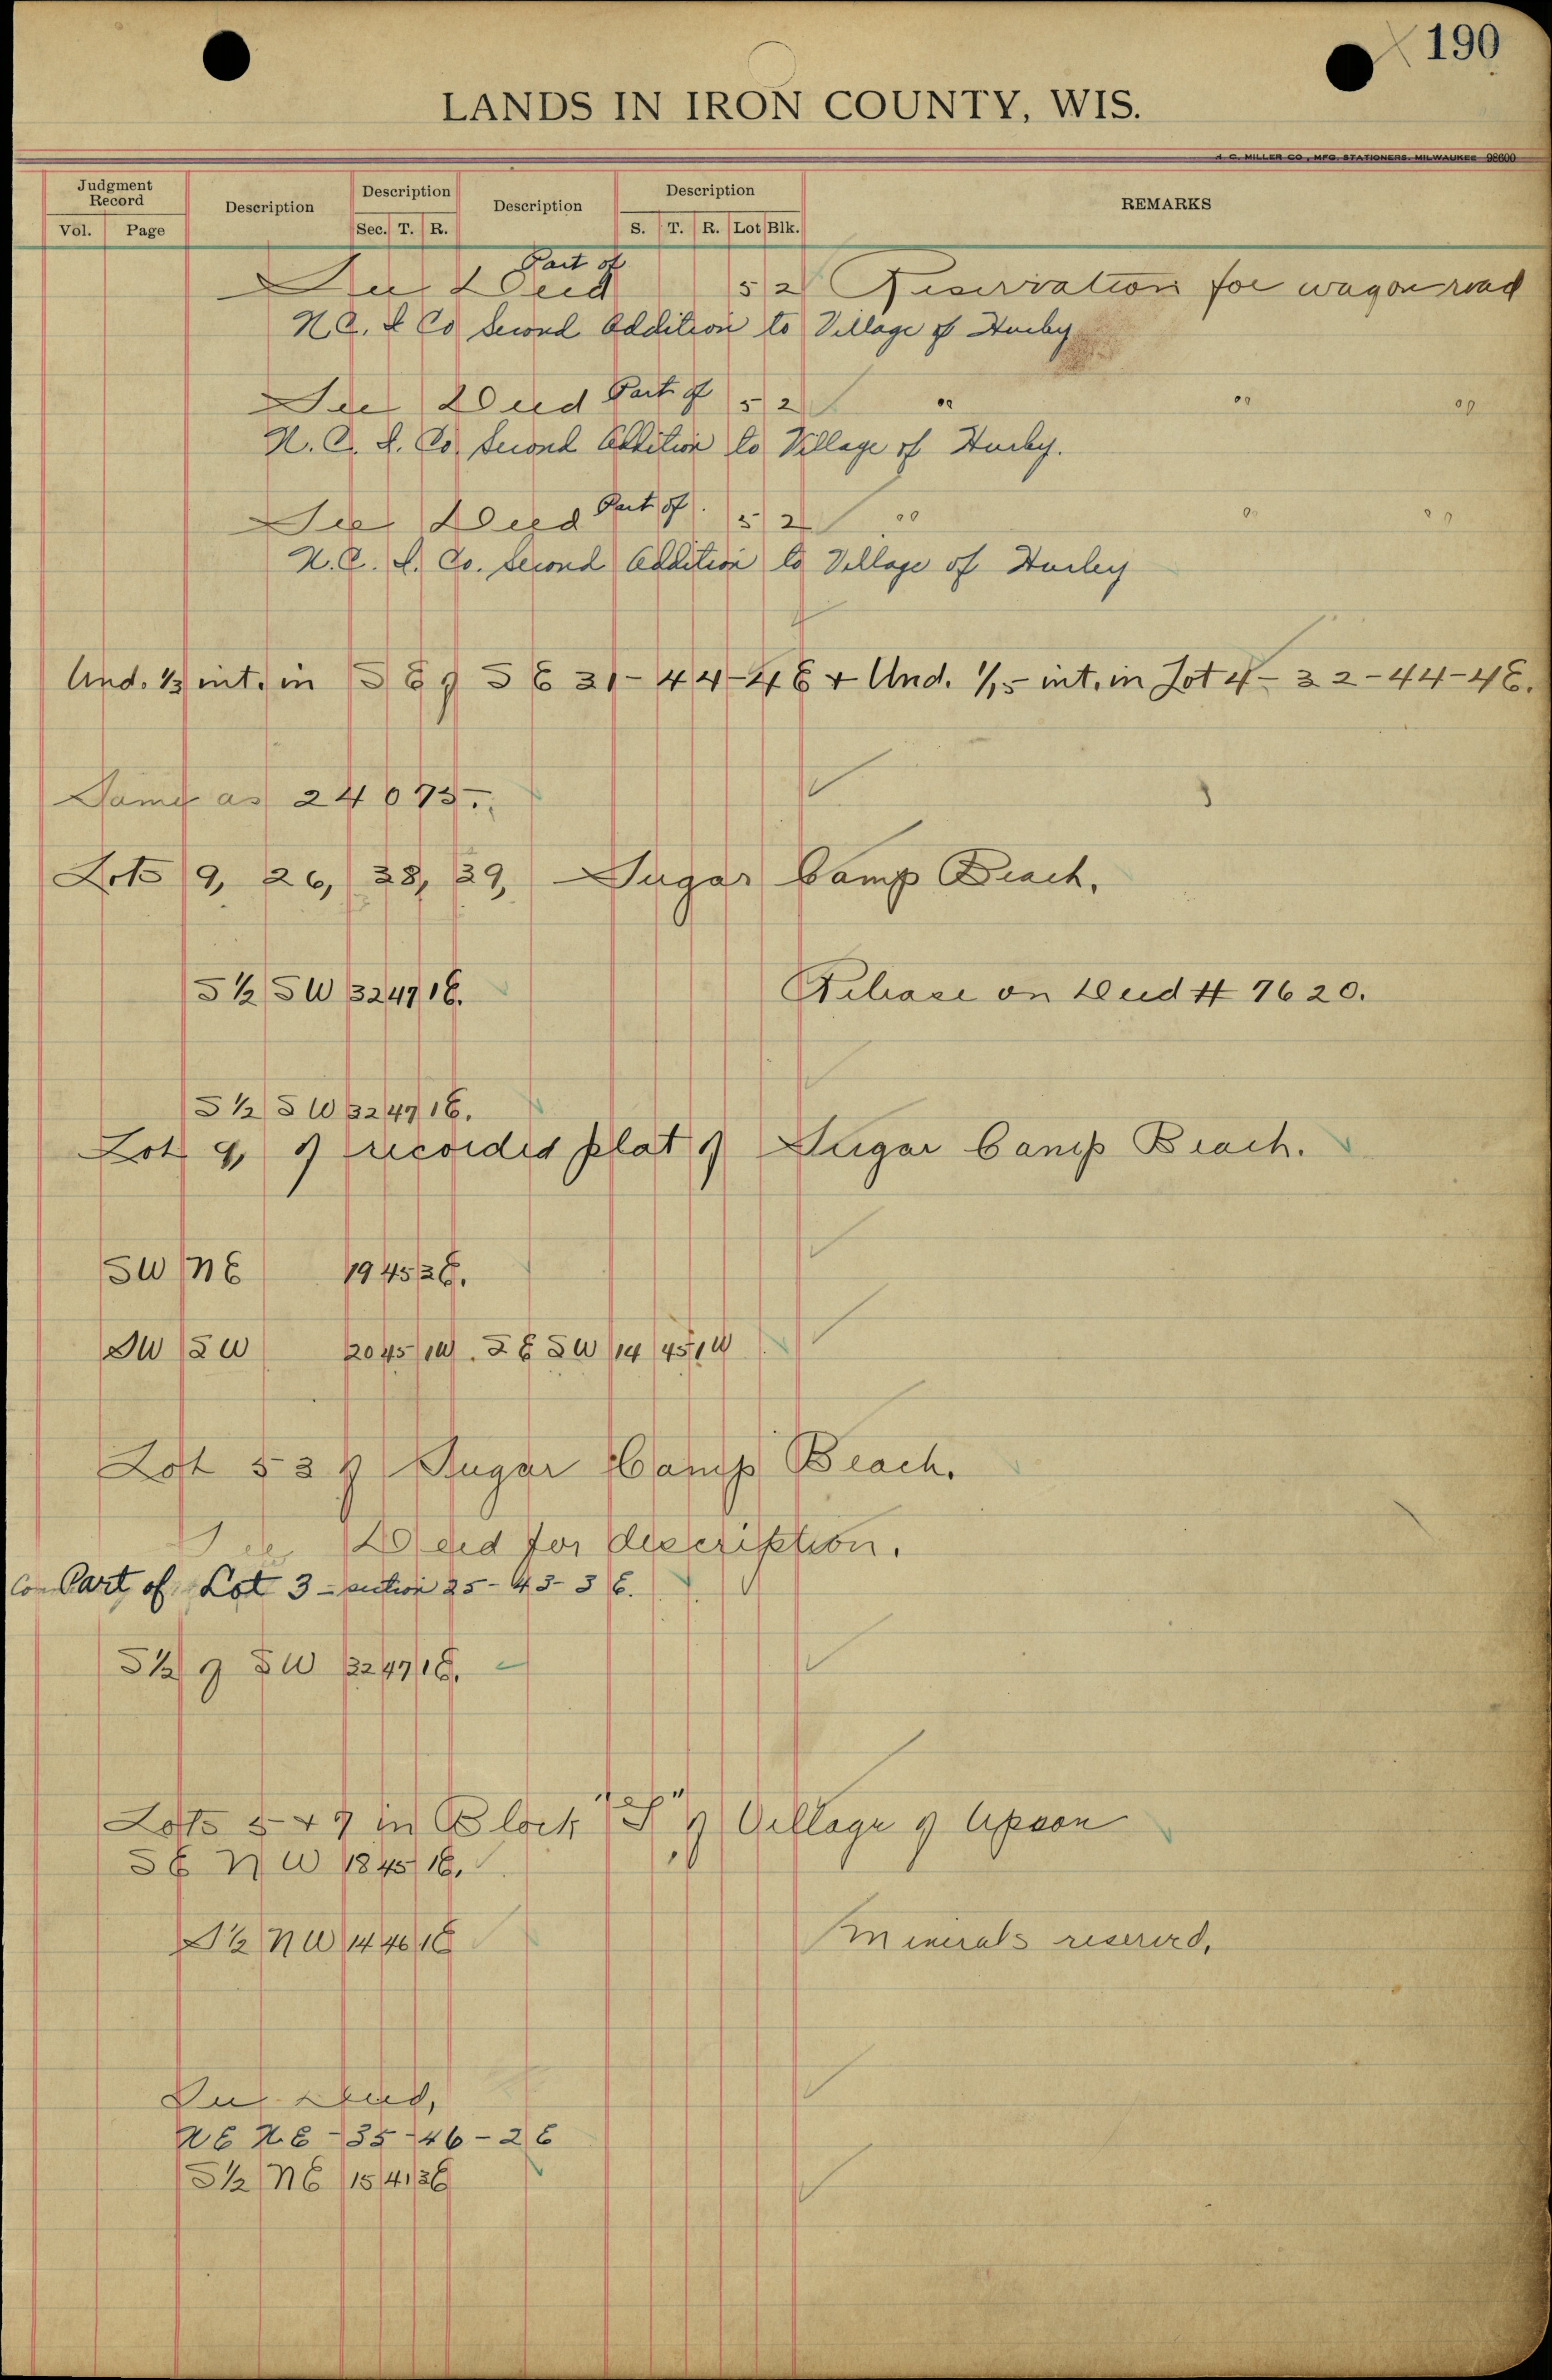 190
LANDS IN IRON COUNTY, WIS.
H. C. MILLER CO., MFG. STATIONERS. MILWAUKEE 98600
Judgment Record Description Description Description Description REMARKS
Vol. Page Sec. T. R. S. T. R. Lot Blk.
Part of
See Deed 5 2 Reservation for wagon road
N.C. I Co Second Addition to Village of Hurley
See Deed Part of 5 2 " " "
N. C. I. Co. Second Addition to Village of Hurley.
See Deed Part of. 5 2 " " "
N.C. I. Co. Second Addition to Village of Hurley
Und. 1/3 int. in S E of S E 31-44-4E + Und. 1/15 int. in Lot 4-32-44-4E.
Same as 24075.
Lots 9, 26, 38, 39, Sugar Camp Beach.
S 1/2 SW 32 47 1E. Release on Deed # 7620.
S 1/2 SW 32 47 1E.
Lot 9, of recorded plat of Sugar Camp Beach.
SW NE 19 45 2E.
SW SW 20 45 1W. SE SW 14 45 1W
Lot 53 of Sugar Camp Beach.
See Deed for description.
Com Part of Lot 3 - section 25-43-3E.
S 1/2 of SW 32 47 1E.
Lots 5 + 7 in Block "S" of Village of Upson
SE NW 18 45 1E.
S 1/2 NW 14 46 1E Minerals reserved.
See Deed,
NE NE - 35-46-2E
S 1/2 NE 15 41 3E